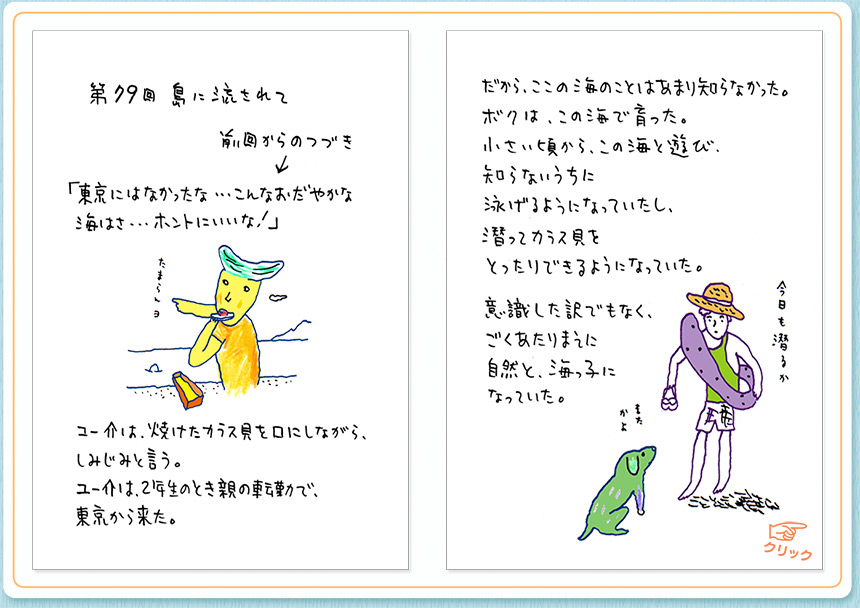 第79回 島に流されて
前回からのつづき
「東京にはなかったな…こんなおだやかな
海はさ…ホントにいいな!」
たまらんヨ
ユー介は、焼けたカラス貝を口にしながら、
しみじみと言う。
ユー介は、2年生のとき親の転勤で、
東京から来た。
だから、ここの海のことはあまり知らなかった。
ボクは、この海で育った。
小さい頃から、この海と遊び、
知らないうちに
泳げるようになっていたし、
潜ってカラス貝を
とったりできるようになっていた。
意識した訳でもなく、
ごくあたりまえに
自然と、海っ子に
なっていた。
今日も潜るか
また
かよ
クリック